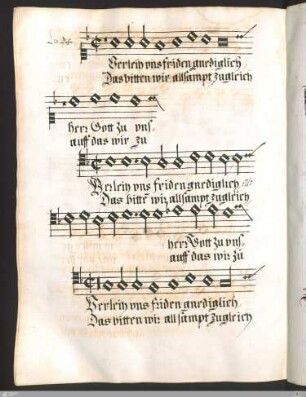 Verleih vns friden gnediglich
Das bitten wir allsampt zugleich
herr Gott zu vns.
auff das wir zu
Verleih vns friden gnediglich
Das bittn wir allsampt zugleich
herr Gott zu vns
auff das wir zu
Verleih vns friden gnediglich
Das bitten wir allsampt zugleich